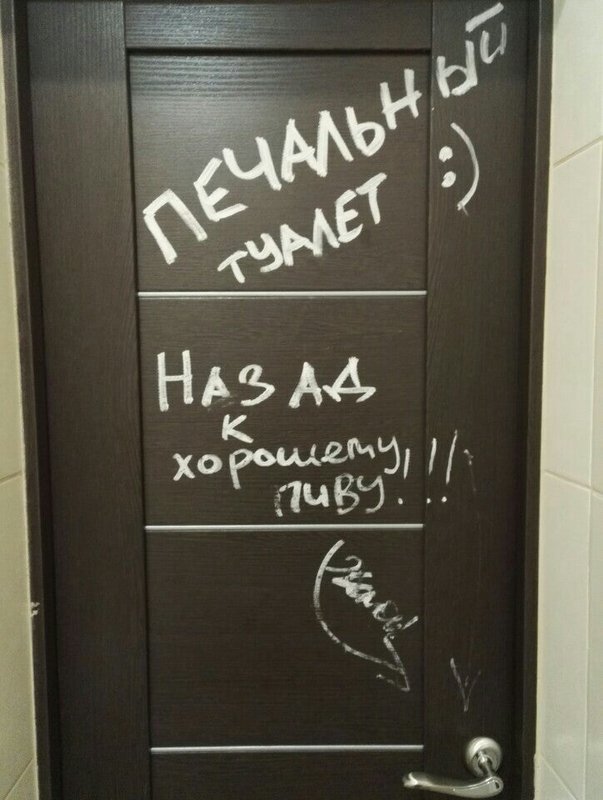 ПЕЧАЛЬНЫЙ
:)
ТУАЛЕТ
НАЗАД
К
хорошему
ПИВУ!!!